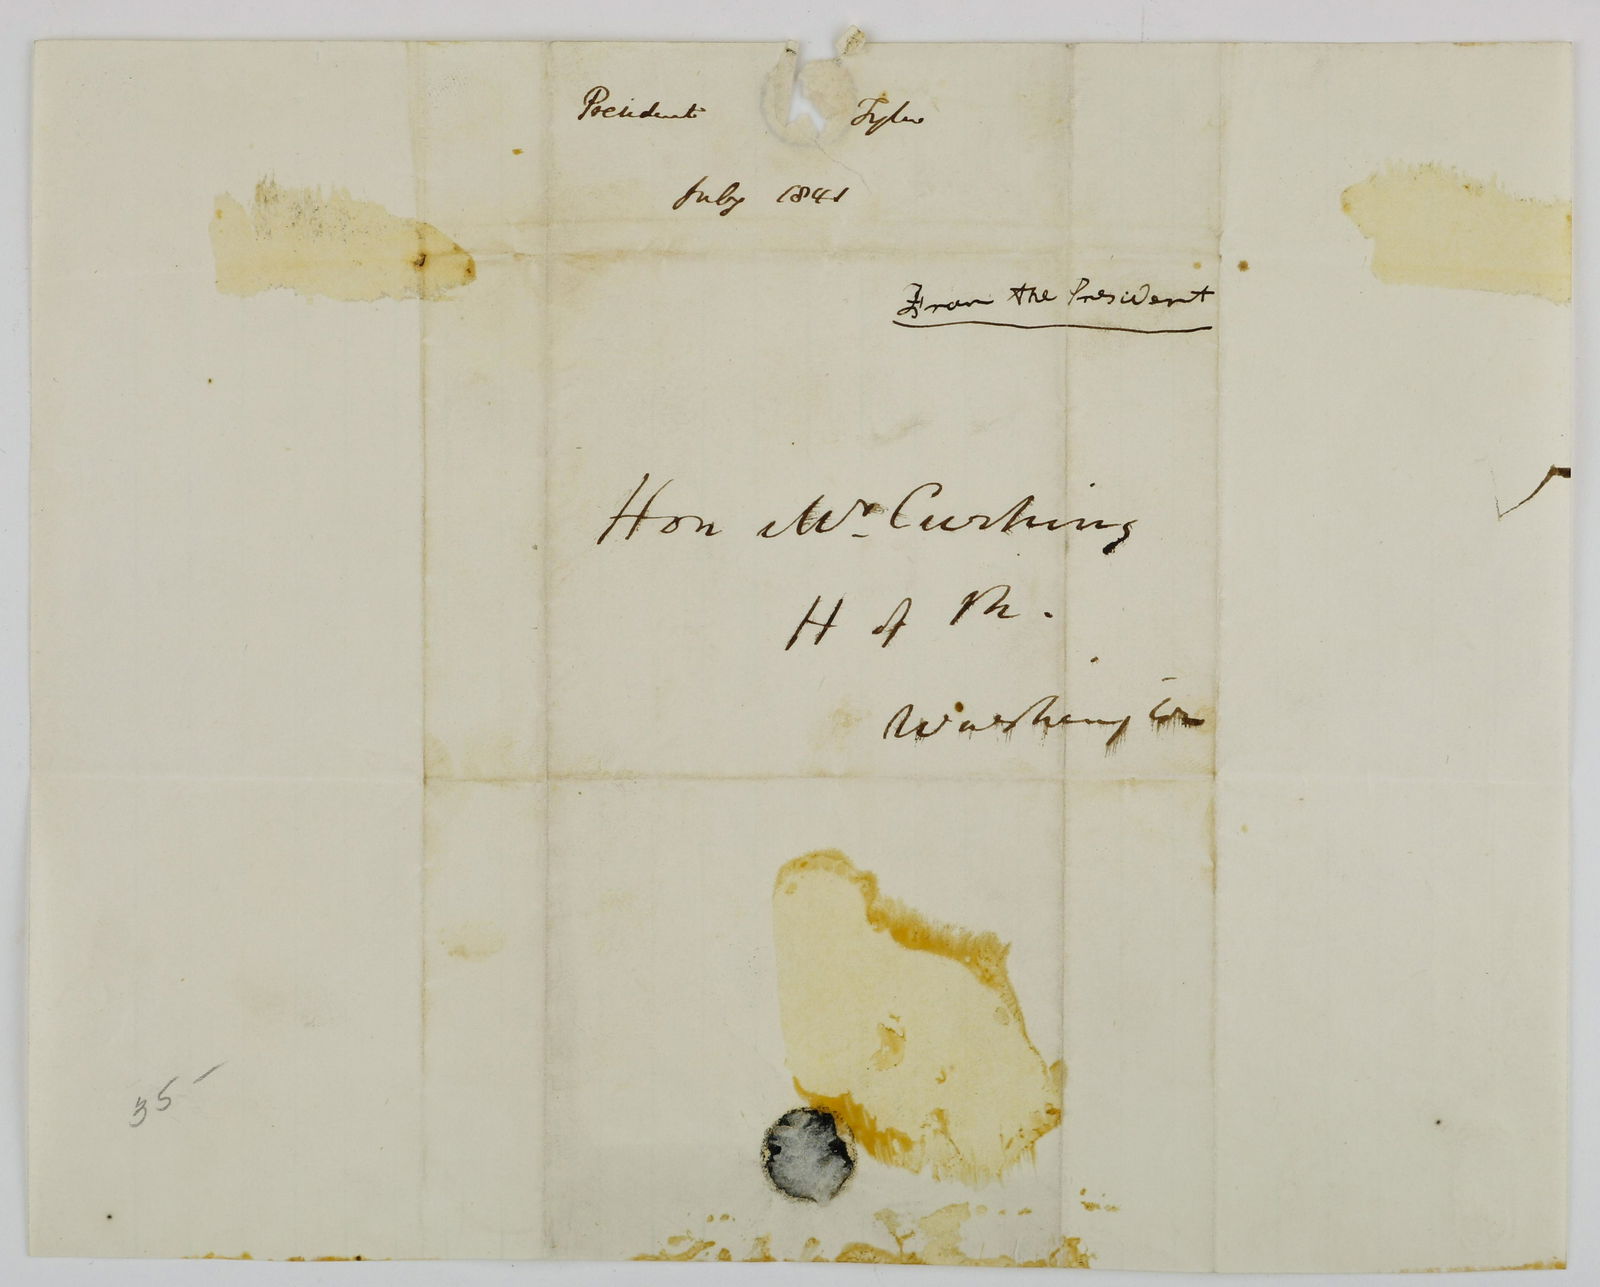 President Tyler
July 1841
From the President
Hon Mr. Cushing
H of R.
Washington
35